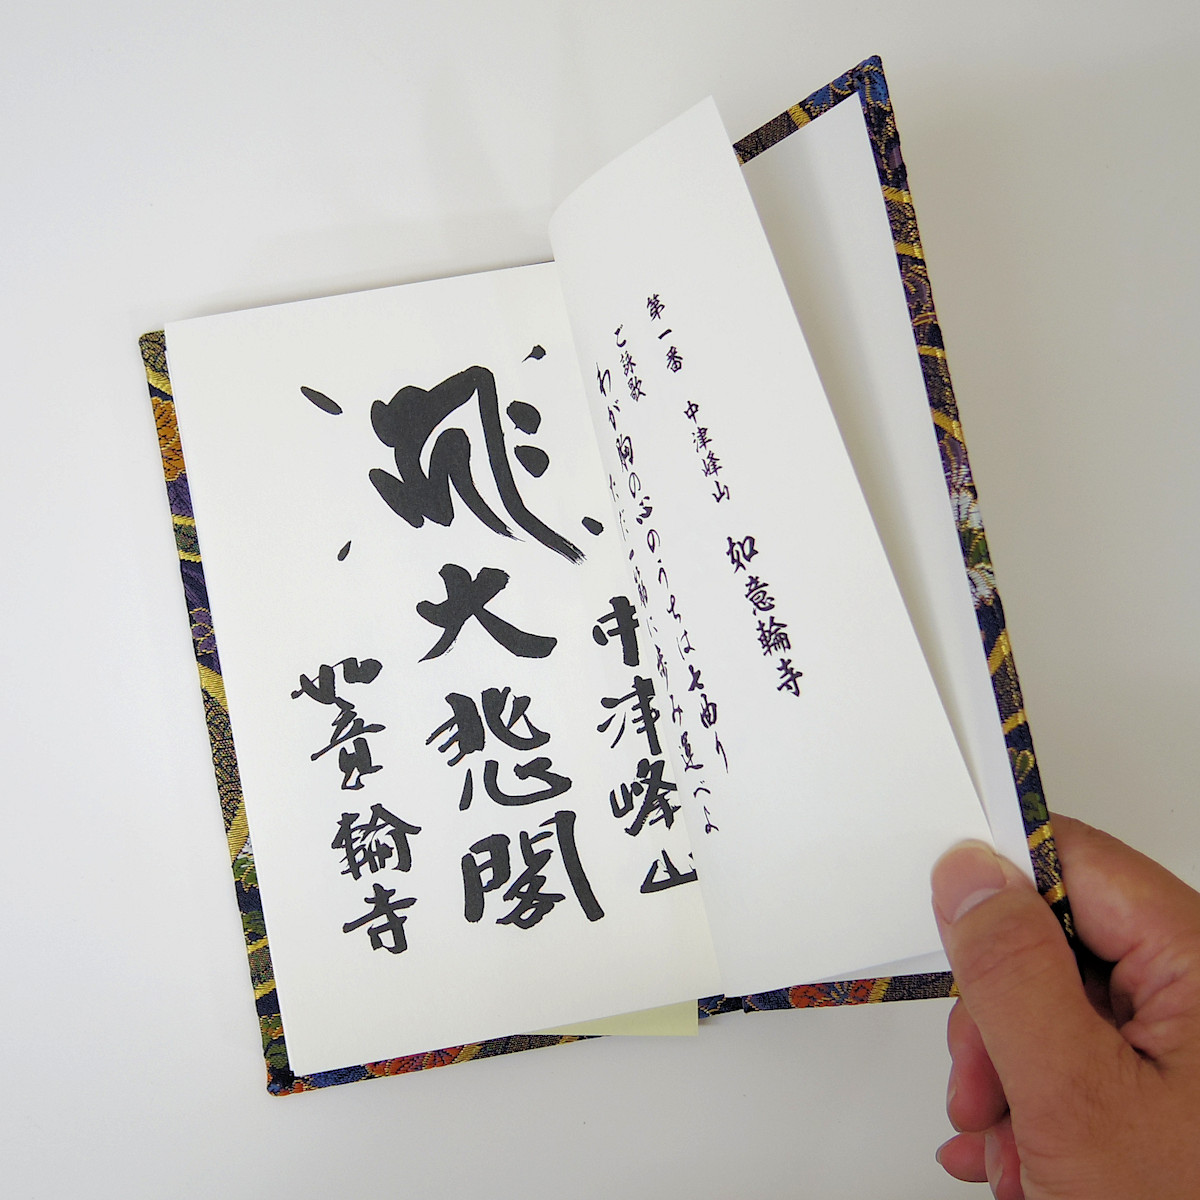 第一番 中津峰山 如意輪寺
ご詠歌
わが胸の心のうちは七曲り
ただ一筋に歩み運べよ
中津峰山
大悲閣
如意輪寺